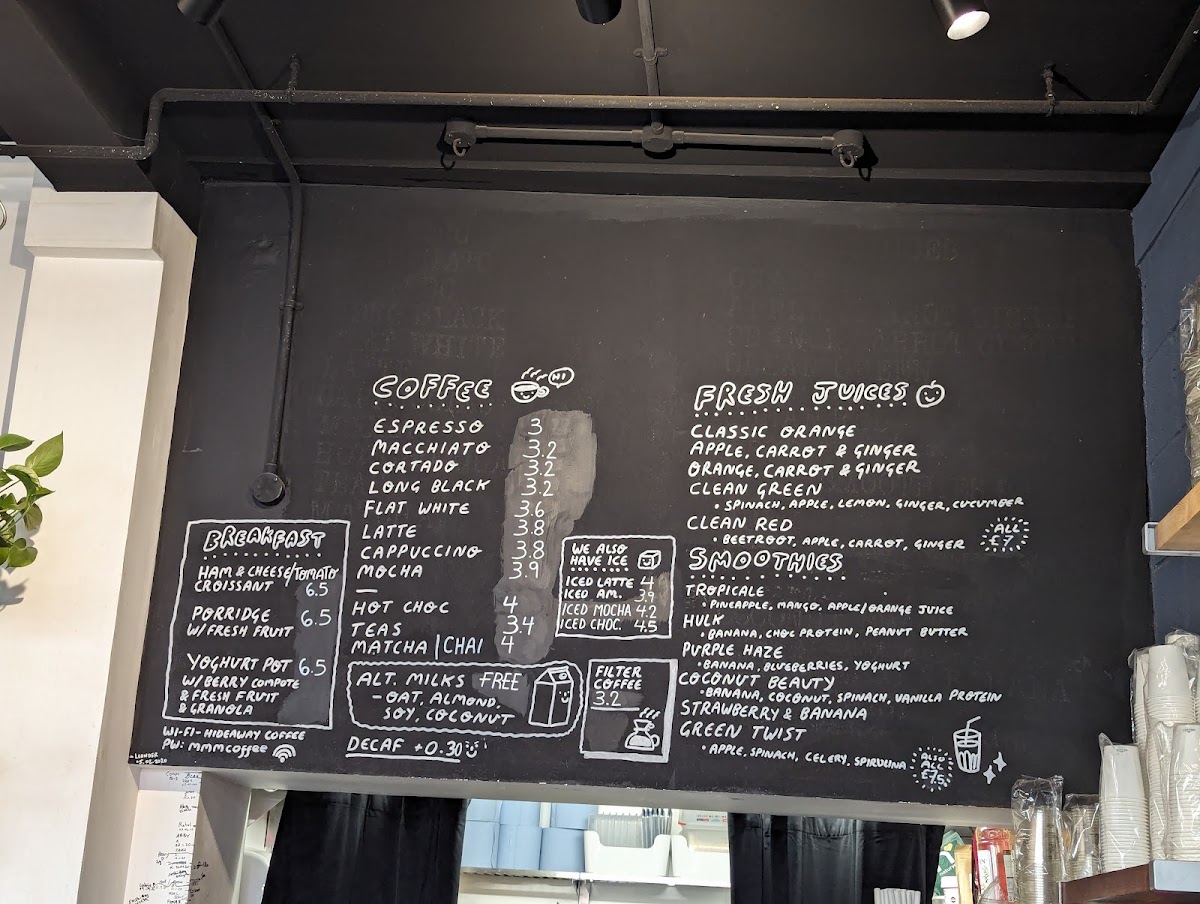 COFFEE
HI
ESPRESSO 3
MACCHIATO 3.2
CORTADO 3.2
LONG BLACK 3.2
FLAT WHITE 3.6
LATTE 3.8
CAPPUCCINO 3.8
MOCHA 3.9
—
HOT CHOC 4
TEAS 3.4
MATCHA | CHAI 4
ALT. MILKS FREE
- OAT, ALMOND,
SOY, COCONUT
DECAF +0.30
BREAKFAST
HAM & CHEESE/TOMATO
CROISSANT 6.5
PORRIDGE 6.5
W/ FRESH FRUIT
YOGHURT POT 6.5
W/ BERRY COMPOTE
& FRESH FRUIT
& GRANOLA
WI-FI - HIDEAWAY COFFEE
PW: mmmcoffee
WE ALSO
HAVE ICE
ICED LATTE 4
ICED AM. 3.9
ICED MOCHA 4.2
ICED CHOC. 4.5
FILTER
COFFEE
3.2
FRESH JUICES
CLASSIC ORANGE
APPLE, CARROT & GINGER
ORANGE, CARROT & GINGER
CLEAN GREEN
• SPINACH, APPLE, LEMON, GINGER, CUCUMBER
CLEAN RED
• BEETROOT, APPLE, CARROT, GINGER
ALL
£7
SMOOTHIES
TROPICALE
• PINEAPPLE, MANGO, APPLE/ORANGE JUICE
HULK
• BANANA, CHOC PROTEIN, PEANUT BUTTER
PURPLE HAZE
• BANANA, BLUEBERRIES, YOGHURT
COCONUT BEAUTY
• BANANA, COCONUT, SPINACH, VANILLA PROTEIN
STRAWBERRY & BANANA
GREEN TWIST
• APPLE, SPINACH, CELERY, SPIRULINA
ALSO
ALL
£7.5